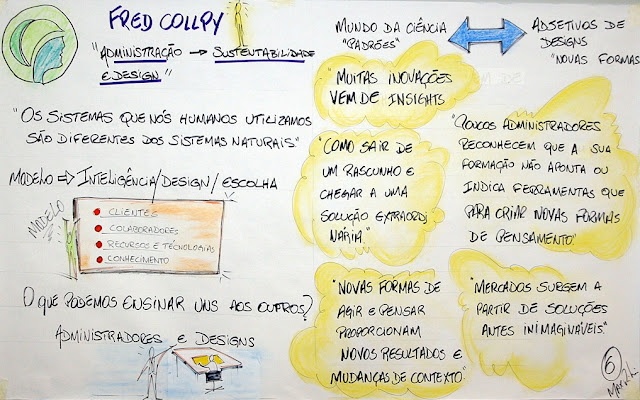 FRED COLLPY
"ADMINISTRAÇÃO → SUSTENTABILIDADE
E DESIGN."
"OS SISTEMAS QUE NÓS HUMANOS UTILIZAMOS
SÃO DIFERENTES DOS SISTEMAS NATURAIS"
MODELO ⇒ INTELIGÊNCIA/DESIGN/ESCOLHA
MODELO
CLIENTES
COLABORADORES
RECURSOS E TECNOLOGIAS
CONHECIMENTO
O QUE PODEMOS ENSINAR UNS AOS OUTROS?
ADMINISTRADORES E DESIGNS
MUNDO DA CIÊNCIA
"PADRÕES"
ADJETIVOS DE
DESIGNS
"NOVAS FORMAS
"MUITAS INOVAÇÕES
VEM DE INSIGHTS
"COMO SAIR DE
UM RASCUNHO E
CHEGAR A UMA
SOLUÇÃO EXTRAORDI
NÁRIA"
"POUCOS ADMINISTRADORES
RECONHECEM QUE A SUA
FORMAÇÃO NÃO APONTA OU
INDICA FERRAMENTAS QUE
PARA CRIAR NOVAS FORMAS
DE PENSAMENTO."
"NOVAS FORMAS DE
AGIR E PENSAR
PROPORCIONAM
NOVOS RESULTADOS E
MUDANÇAS DE CONTEXTO."
"MERCADOS SURGEM A
PARTIR DE SOLUÇÕES
ANTES INIMAGINÁVEIS."
6